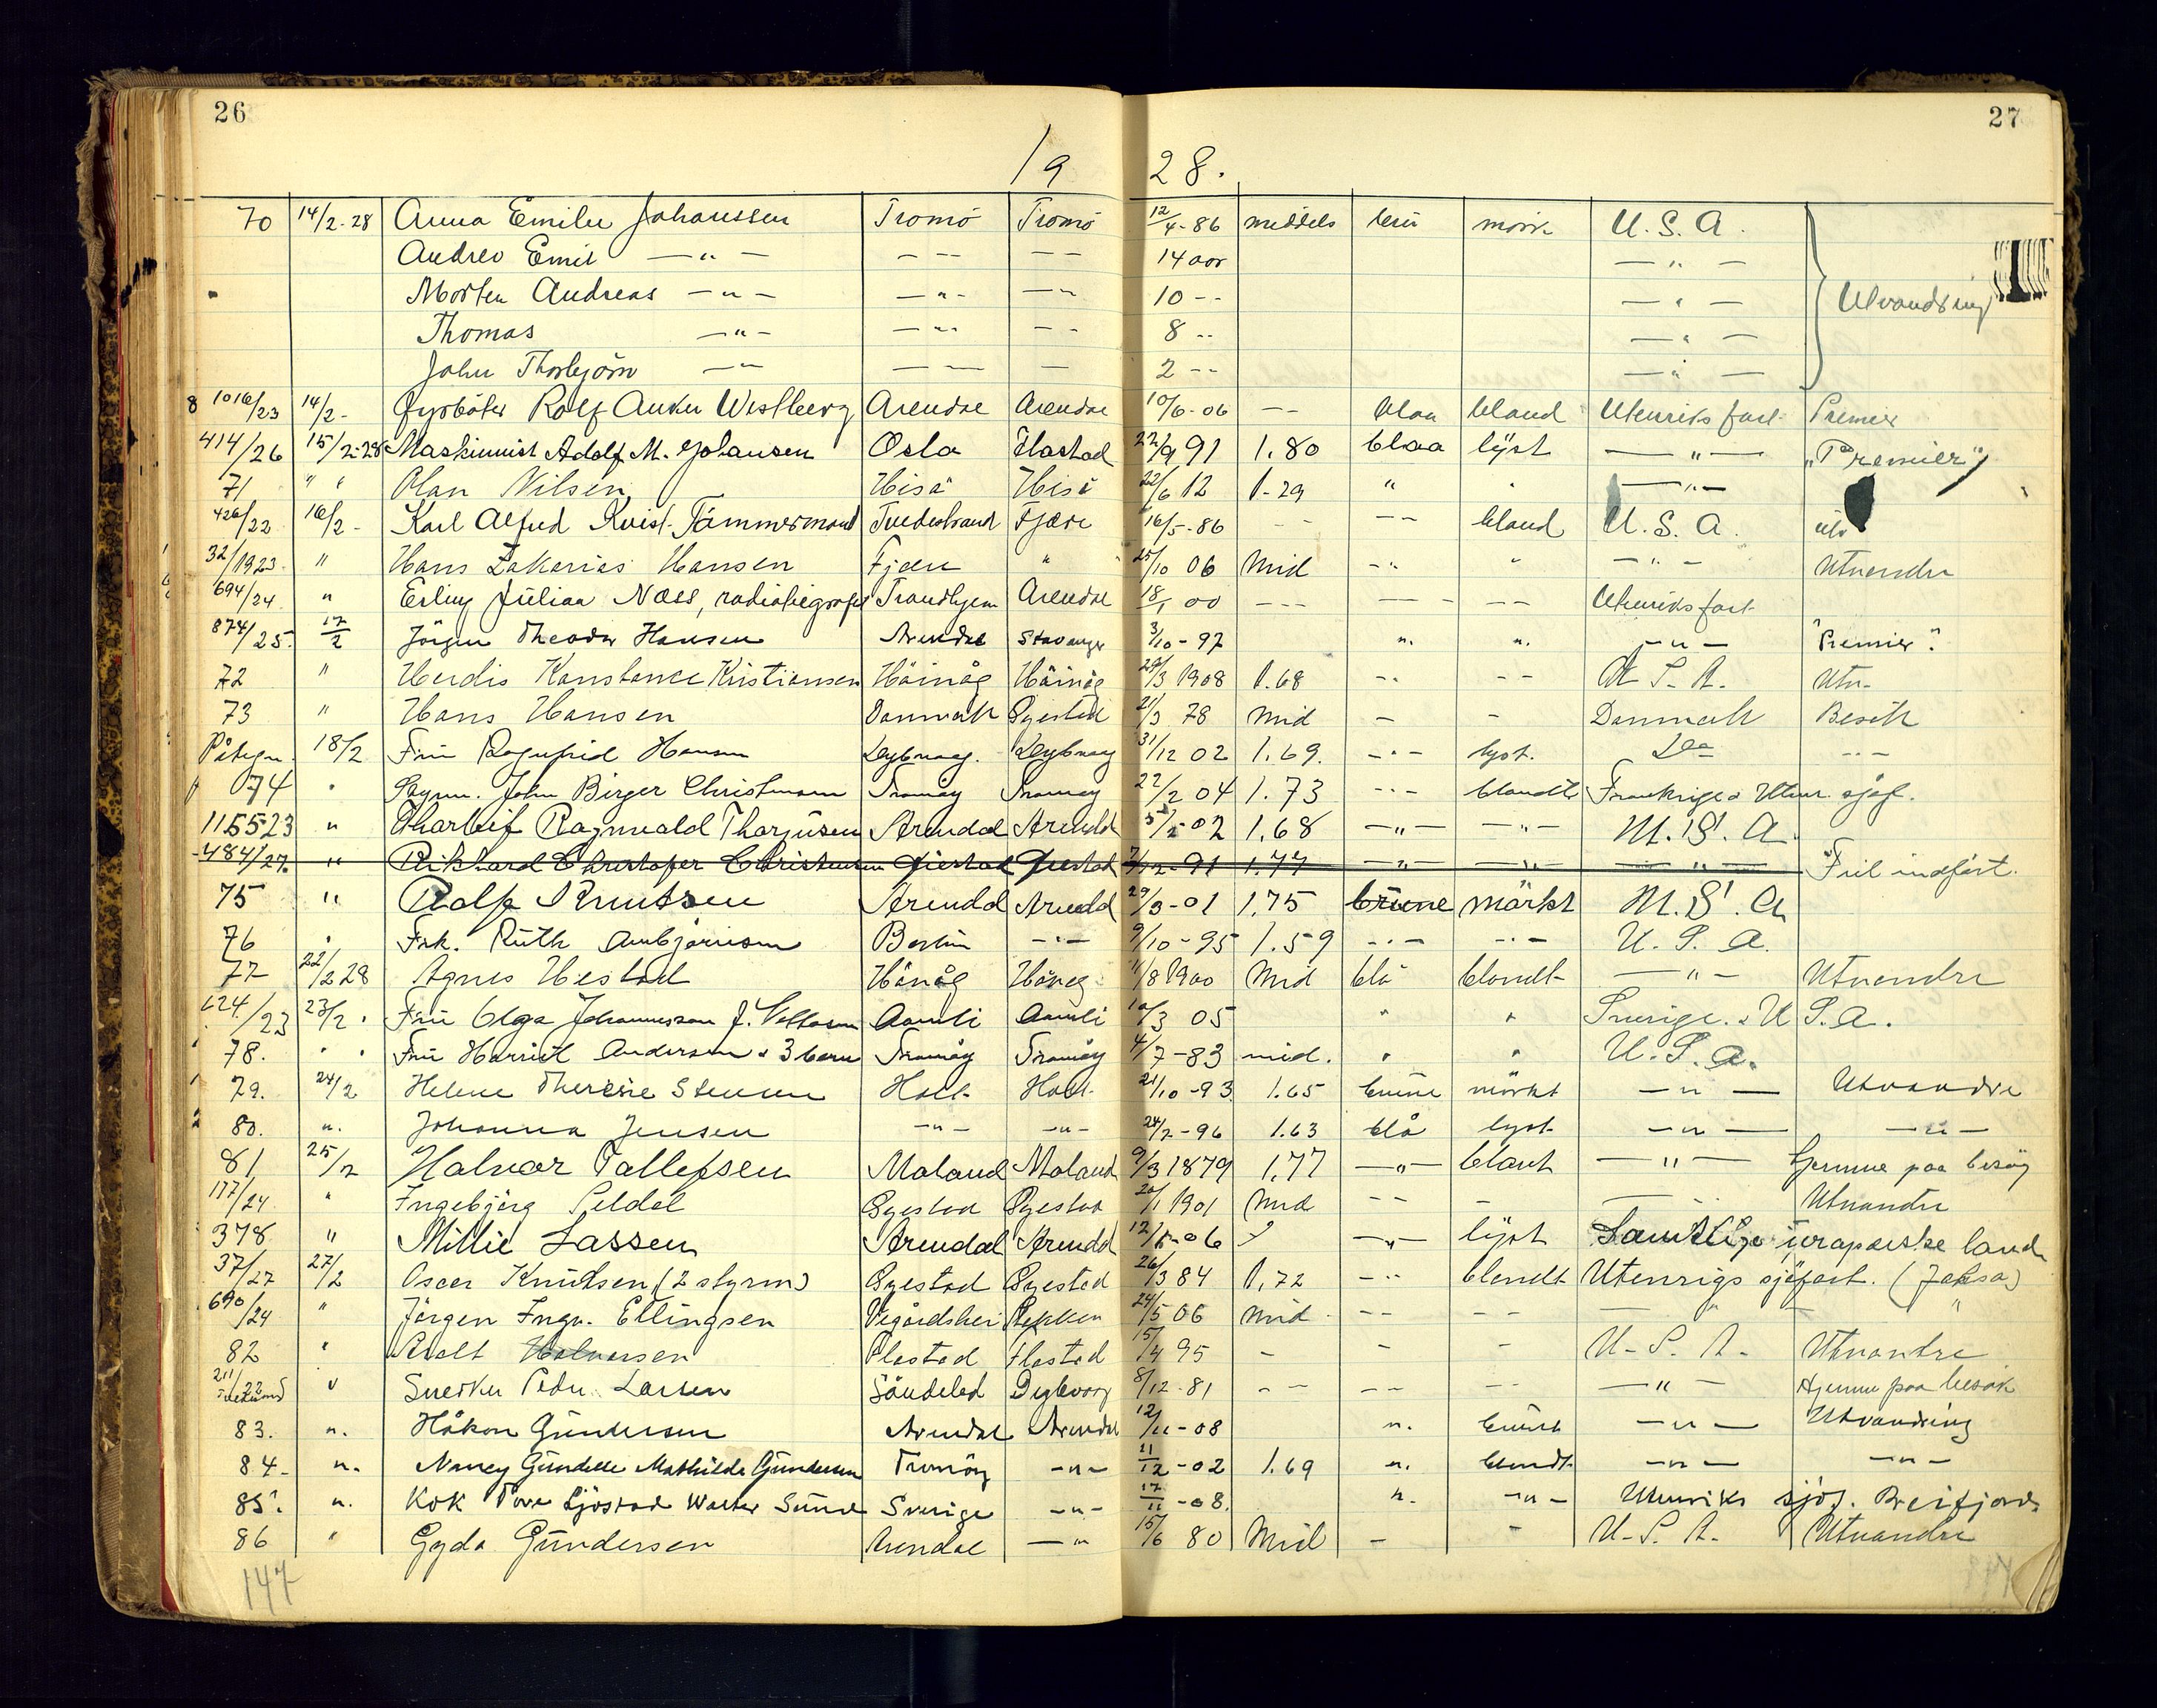 26 27
19 28.
70 14/2-28 Anna Emilie Johanssen Tromö Tromö 12/4-86 middels brun mörk U.S.A.
Andrev Emil —"— — — — — 14 aar —"—
Morten Andreas —"— —"— —"— 10 -- —"— Utvandring
Thomas —"— —"— — — 8 -- —"—
John Thorbjörn —"— — — — 2 -- —"—
8 1016/23 14/2- Fyrböter Rolf Anker Westberg Arendal Arendal 10/6-06 -- blaa bland Utenriks fart Premier
414/26 15/2-28 Maskinnist Adolf M. Johansen Oslo Flostad 22/9 91 1.80 blaa lyst —"— "Premier"
71 " " Olan Nilsen Hisö Hisö 22/6 12 1-29 " " —"—
426/22 16/2- Karl Alfred Kvist. Tömmermand Tvedestrand Fjære 16/5-86 -- -- bland U.S.A. utv
32/1923. " Hans Zakarias Hansen Fjære " 25/10 06 Mid -"- " —"— Utvandre
694/24 " Erling Julian Næss, radiotelegrafist Trondhjem Arendal 18/1 00 --- --- -- Utenriks fart
874/25. 17/2 Jörgen Theodor Hansen Arendal Stavanger 3/10-97 ". ". —"— "Premier".
72 " Herdis Konstance Kristiansen Höinåg Höinåg 29/3 1908 1.68 -- -- U.S.A. Utv-
73 " Hans Hansen Danmark Öyestad 21/3 78 Mid - - Danmark Besök
Påtegn. 18/2 Fru Ragnfrid Hansen Dybvaag. Dybvaag 31/12 02 1.69. -"- lyst. Do -"-
74 " Styrm. John Birger Christensen Tromöy Tromöy 22/2 04 1.73 -"- blondt Frankrige & Utenr. sjöf.
1155 23 " Thorleif Ragnvald Thorjusen Arendal Arendal 5/2-02 1.68 —"— —"— U.S.A.
484/27. " Rikhard Christofer Christensen Öiestad Öiestad 7/12-91 1.77 —"— —"— —"— Feil indfört.
75 " Rolf Knutsen Arendal Arendal 29/3-01 1.75 brune mörkt U.S.A.
76 " Frk. Ruth Arnbjörnsen Berlin -"- 9/10-95 1.59 -"- -"- U.S.A.
77 22/2 28 Agnes Hestad Hönåg Höneg 11/8 1900 Mid blå blondt —"— Utvandre
624/23 23/2. Fru Olga Johannessen f. Aamli Aamli 10/3 05 " " Sverige. & U.S.A.
78. " " Fru Harriet Andersen & 3 barn Tromöy Tromöy 4/7-83 mid. " " U.S.A.
79. 24/2 Helene Therese Stensen Holt Holt 21/10-93 1.65 brune mörkt —"— Utvandre
80. ". Johanna Jensen —"— —"— 24/2-96 1.63 blå lyst —"— —"—
81 25/2 Halvor Tallefsen Moland Moland 9/3 1879 1.77 —"— blont —"— hjemme paa besög
177/24 " Ingebjörg Seldal Öyestad Öyestad 20/1 1901 Mid -- - — Utvandre
378 " Millie Lassen Arendal Arendal 12/5-06 " —"— lyst Samtlige uropæiske land
37/27 27/2 Oscar Knutsen (2 styrm) Öyestad Öyestad 26/3 84 1,72 -"- blondt Utenrigs sjöfart. (Jotsa)
690/24 " Jörgen Ingv. Ellingsen Vegårdshei 24/5 06 Mid -- -- —"— "
82 " Halvorsen Flostad Flostad 15/4 95 - - U.S.A. Utvandre
211/22 " Sverker Peder Larsen Söndeled Dybvaag 8/12-81 -- -- -- —"— Hjemme paa besök
83. ". Håkon Gundersen Arendal Arendal 12/11-08 ". brunt —"— Utvandring
84- ". Nancy Gundelle Mathilde Gundersen Tromöy —"— 11/12-02 1.69 ". blondt —"— —"—
85. ". Kok Tore Sjöstad Walter Sverige —"— 17/11-08. ". —"— Utenriks sjöf. Breifjord
86 " Gyda Gundersen Arendal —"— 15/6 80 Mid - - U.S.A. Utvandre
147